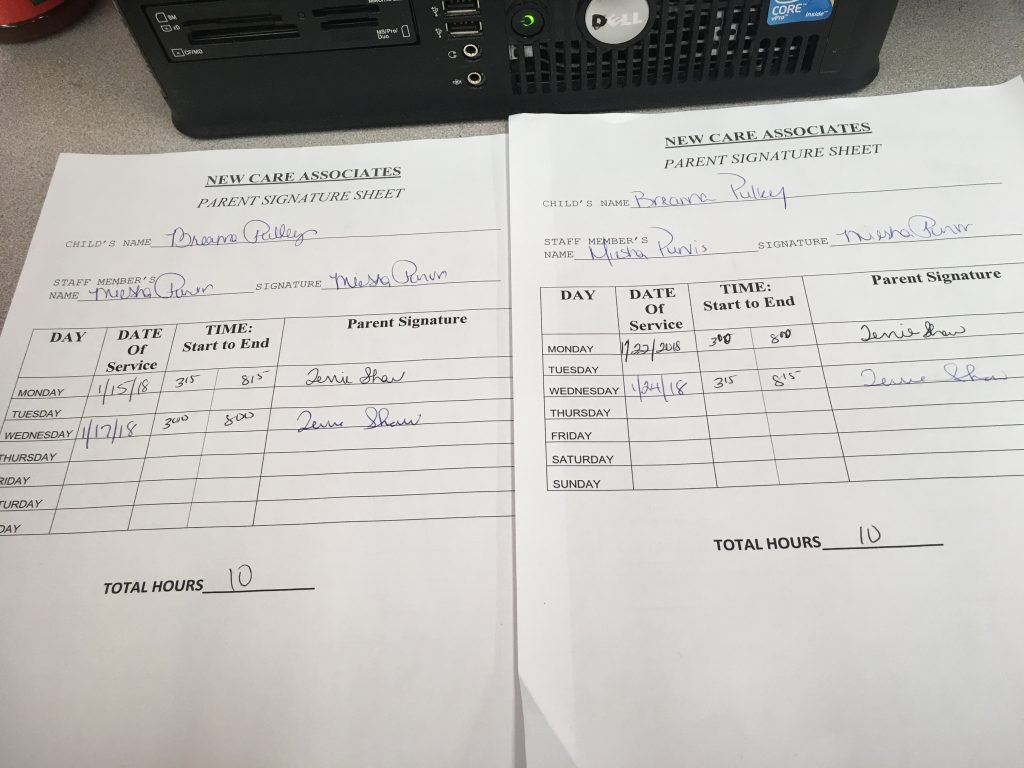 SM
xD
CF/MD
MS/Pro/
Duo
DELL
CORE
vPro inside
NEW CARE ASSOCIATES
PARENT SIGNATURE SHEET
CHILD'S NAME Breanna Pulley
STAFF MEMBER'S
NAME Miesha Purvis SIGNATURE Miesha Purvis
DAY DATE Of Service TIME: Start to End Parent Signature
MONDAY 1/15/18 3 15 8 15 Terrie Shaw
TUESDAY
WEDNESDAY 1/17/18 3 00 8 00 Terrie Shaw
THURSDAY
RIDAY
TURDAY
DAY
TOTAL HOURS 10
NEW CARE ASSOCIATES
PARENT SIGNATURE SHEET
CHILD'S NAME Breanna Pulley
STAFF MEMBER'S
NAME Miesha Purvis SIGNATURE Miesha Purvis
DAY DATE Of Service TIME: Start to End Parent Signature
MONDAY 1/22/2018 3 00 8 00 Terrie Shaw
TUESDAY
WEDNESDAY 1/24/18 3 15 8 15 Terrie Shaw
THURSDAY
FRIDAY
SATURDAY
SUNDAY
TOTAL HOURS 10